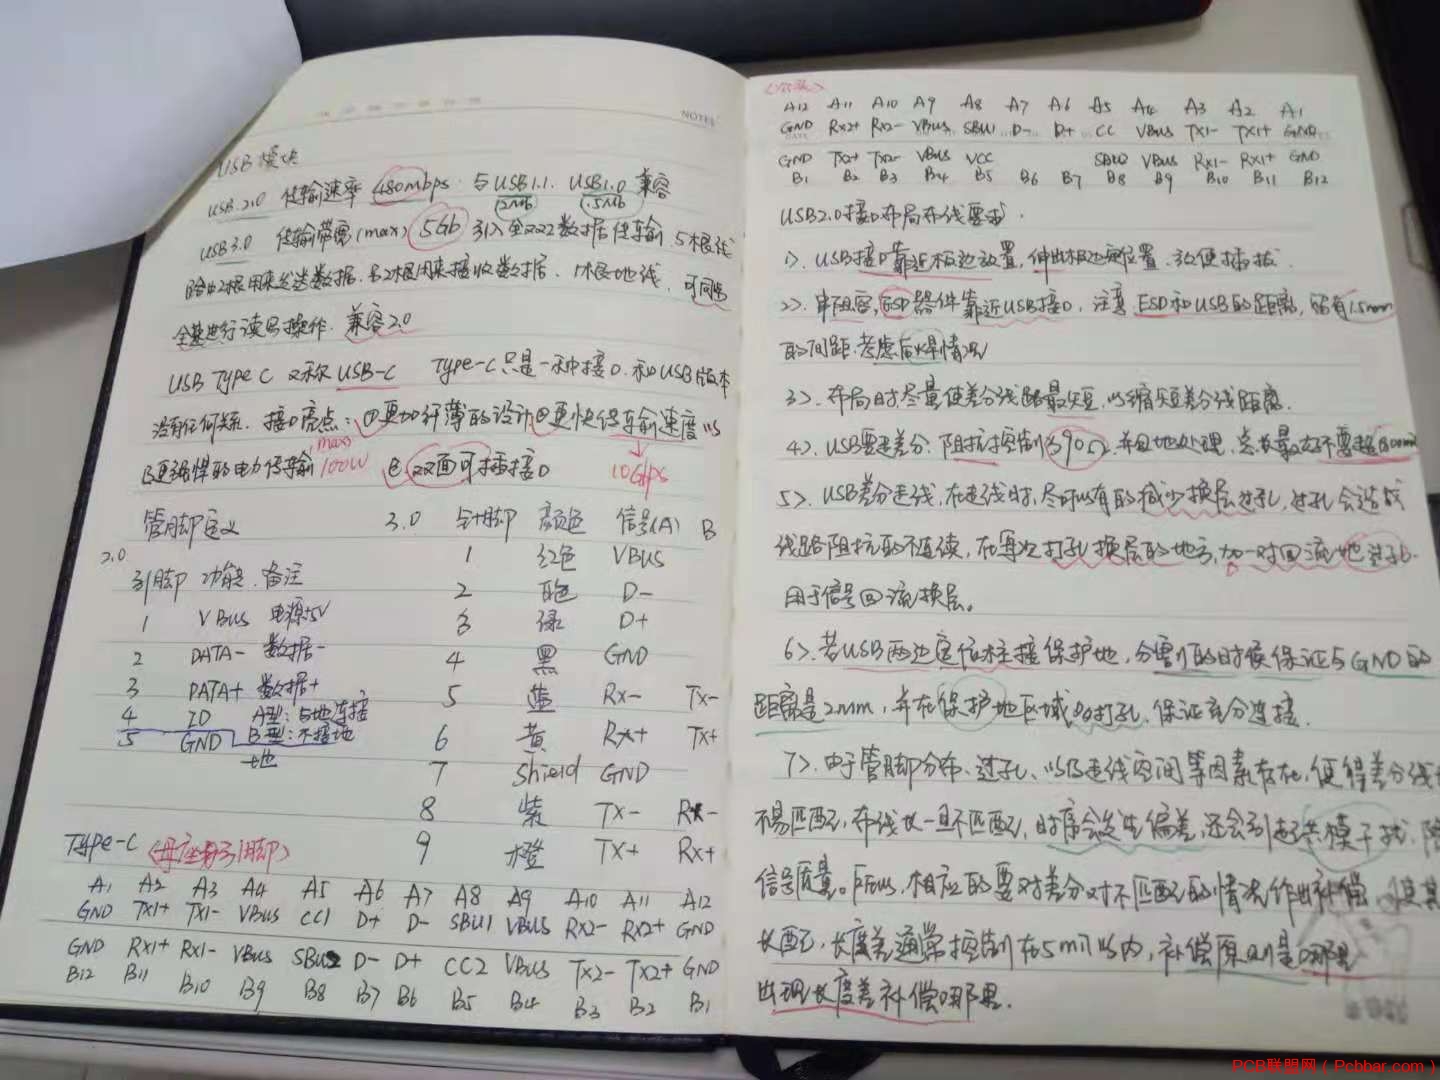 NOTES
USB模块
USB 2.0 传输速率 480mbps. 与USB1.1. USB1.0 兼容
12Mb 1.5Mb
USB3.0 传输带宽(max) 5Gb 引入全双工数据传输. 5根线
路中2根用来发送数据. 另2根用来接收数据. 1根地线. 可同步
全速进行读写操作. 兼容2.0
USB Type C 又称 USB-C Type-C只是一种接口. 和USB版本
没有任何关系. 接口亮点: ①更加纤薄的设计②更快传输速度
③更强悍的电力传输 max 100W ④ 双面可插接口 10Gbps
管脚定义
2.0
引脚 功能 备注
1 VBus 电源+5V
2 DATA- 数据-
3 DATA+ 数据+
4 ID A型:与地连接
B型:不接地
5 GND 地
3.0 针脚 颜色 信号(A) B
1 红色 VBUS
2 白色 D-
3 绿 D+
4 黑 GND
5 蓝 Rx- Tx-
6 黄 Rx+ Tx+
7 Shield GND
8 紫 Tx- Rx-
9 橙 Tx+ Rx+
Type-C (母座引脚)
A1 A2 A3 A4 A5 A6 A7 A8 A9 A10 A11 A12
GND Tx1+ Tx1- VBUS CC1 D+ D- SBU1 VBUS Rx2- Rx2+ GND
GND Rx1+ Rx1- VBus SBU2 D- D+ CC2 VBus Tx2- Tx2+ GND
B12 B11 B10 B9 B8 B7 B6 B5 B4 B3 B2 B1
A12 A11 A10 A9 A8 A7 A6 A5 A4 A3 A2 A1
GND Rx2+ Rx2- VBus SBU1 D- D+ CC VBus Tx1- Tx1+ GND
GND Tx2+ Tx2- VBus VCC SBU2 VBus Rx1- Rx1+ GND
B1 B2 B3 B4 B5 B6 B7 B8 B9 B10 B11 B12
USB2.0接口布局布线要求.
1>. USB接口靠近板边放置, 伸出板边位置. 方便插拔.
2>. 串阻容, ESD器件靠近USB接口. 注意 ESD和USB的距离, 留有1.5mm
的间距. 考虑后焊情况
3>. 布局时, 尽量使差分线路最短, 以缩短差分线距离.
4>. USB要走差分. 阻抗控制为90Ω. 并包地处理, 总长最好不要超1800mil
5>. USB差分走线, 在走线时, 尽可能的减少换层过孔, 过孔会造成
线路阻抗的不连续, 在每次打孔换层的地方, 加一对回流地过孔.
用于信号回流换层.
6>. 若USB两边定位柱接保护地, 分割的时候保证与GND的
距离是2mm, 并在保护地区域多打孔. 保证充分连接.
7>. 由于管脚分布、过孔、以及走线空间等因素存在, 使得差分线
不易匹配, 而线长一旦不匹配, 时序会发生偏差, 还会引起共模干扰,
信号质量. 所以, 相应的要对差分对不匹配的情况作出补偿. 使其
长匹配, 长度差通常控制在5mil以内, 补偿原则是哪里
出现长度差补偿哪里.
PCB联盟网 ( Pcbbar.com )